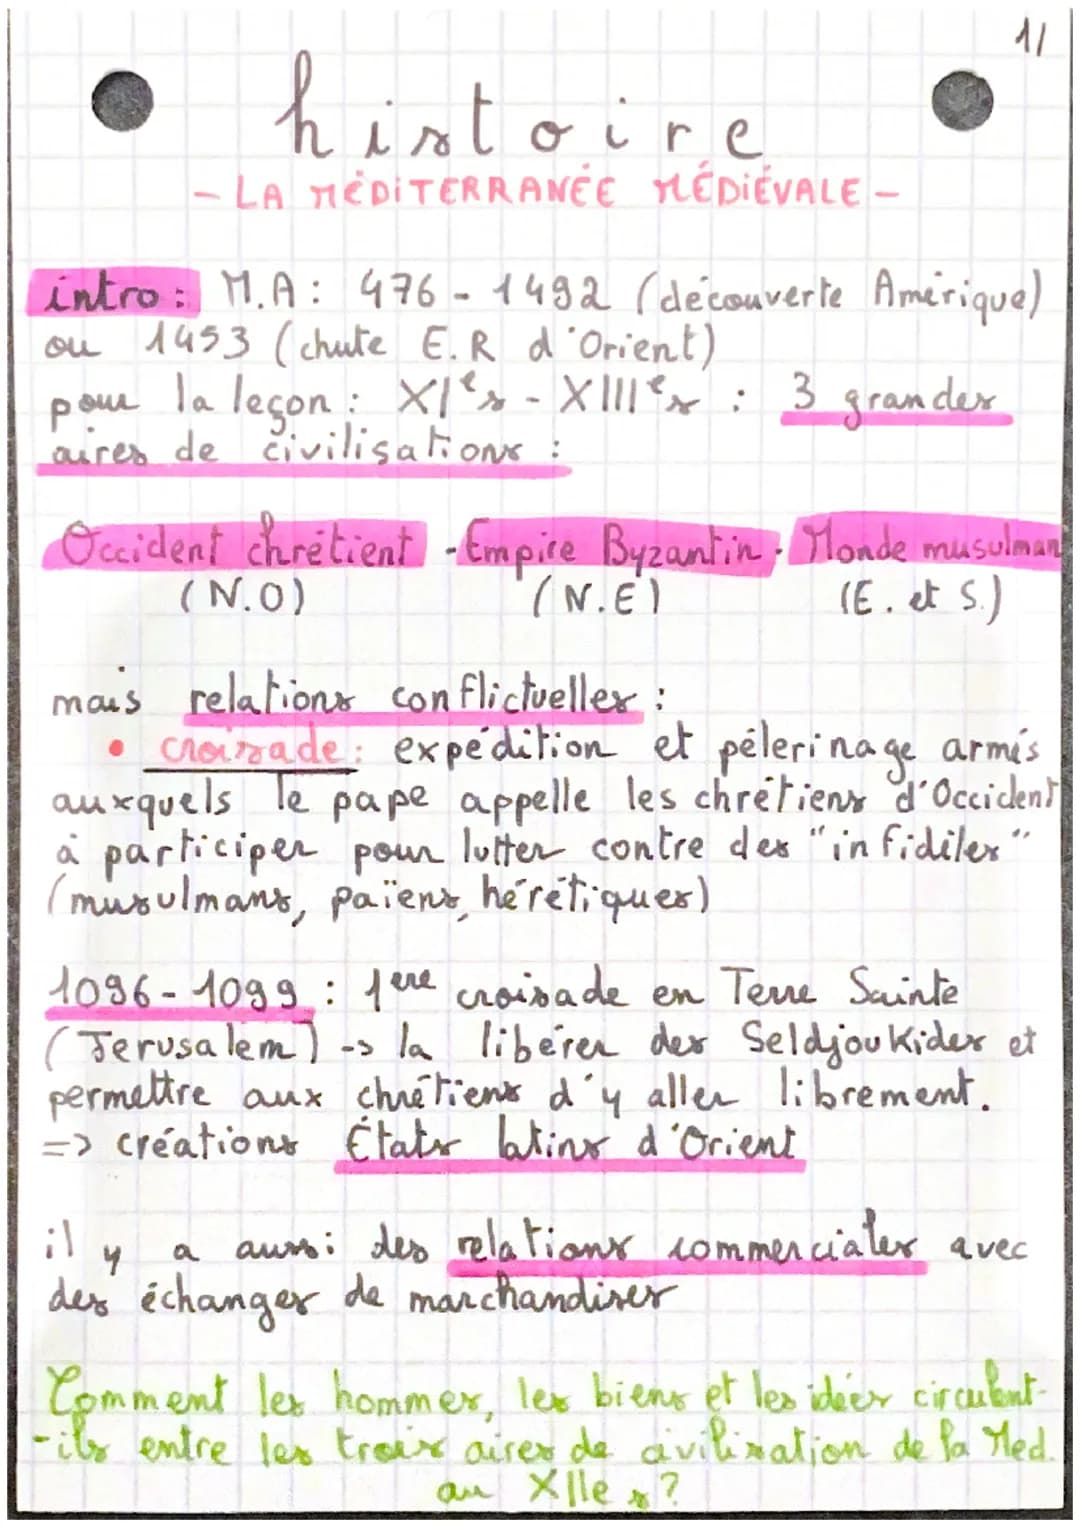 1/
histoire
- LA MÉDITERRANÉE MÉDIÉVALE -
intro : M.A : 476 - 1492 (découverte Amérique)
ou 1453 (chute E.R d'Orient)
pour la leçon : XIes - XIIIes : 3 grandes
aires de civilisations :
Occident chrétient - Empire Byzantin - Monde musulman
(N.O) (N.E) (E. et S.)
mais relations conflictuelles :
• croisade : expédition et pélerinage armés
auxquels le pape appelle les chrétiens d'Occident
à participer pour lutter contre des "infidiles"
(musulmans, païens, hérétiques)
1096-1099 : 1ere croisade en Terre Sainte
(Jerusalem) -> la libérer des Seldjoukides et
permettre aux chrétiens d'y aller librement.
=> créations États latins d'Orient
il y a aussi des relations commerciales avec
des échanges de marchandises
Comment les hommes, les biens et les idées circulent-
-ils entre les trois aires de civilisation de la Med.
au XIIe s ?